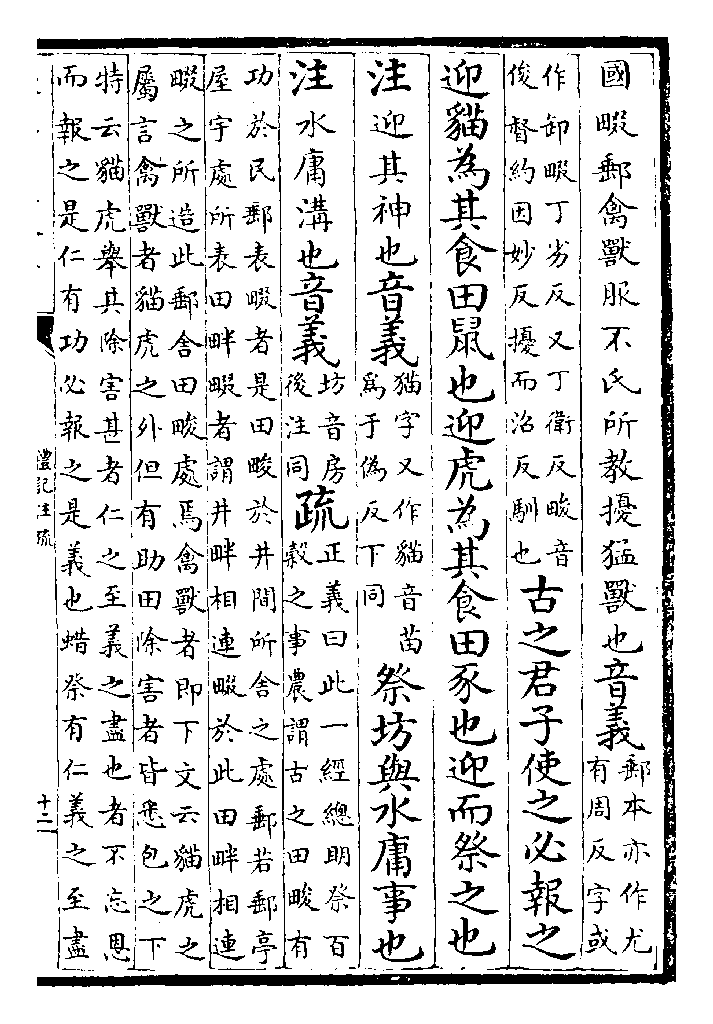 國畷郵禽獸服不氏所教擾猛獸也音義郵本亦作尤有周反字或
作卸畷丁劣反又丁衛反畯音俊督約因妙反擾而沼反馴也古之君子使之必報之
迎貓為其食田鼠也迎虎為其食田豕也迎而祭之也
注迎其神也音義貓字又作猫音苗為于偽反下同祭坊與水庸事也
注水庸溝也音義坊音房後注同疏正義曰此一經總明祭百穀之事農謂古之田畯有
功於民郵表畷者是田畯於井間所舍之處郵若郵亭
屋宇處所表田畔畷者謂井畔相連畷於此田畔相連
畷之所造此郵舍田畯處焉禽獸者即下文云貓虎之
屬言禽獸者貓虎之外但有助田除害者皆悉包之下
特云貓虎舉其除害甚者仁之至義之盡也者不忘恩
而報之是仁有功必報之是義也蜡祭有仁義之至盡
禮記注疏
十二